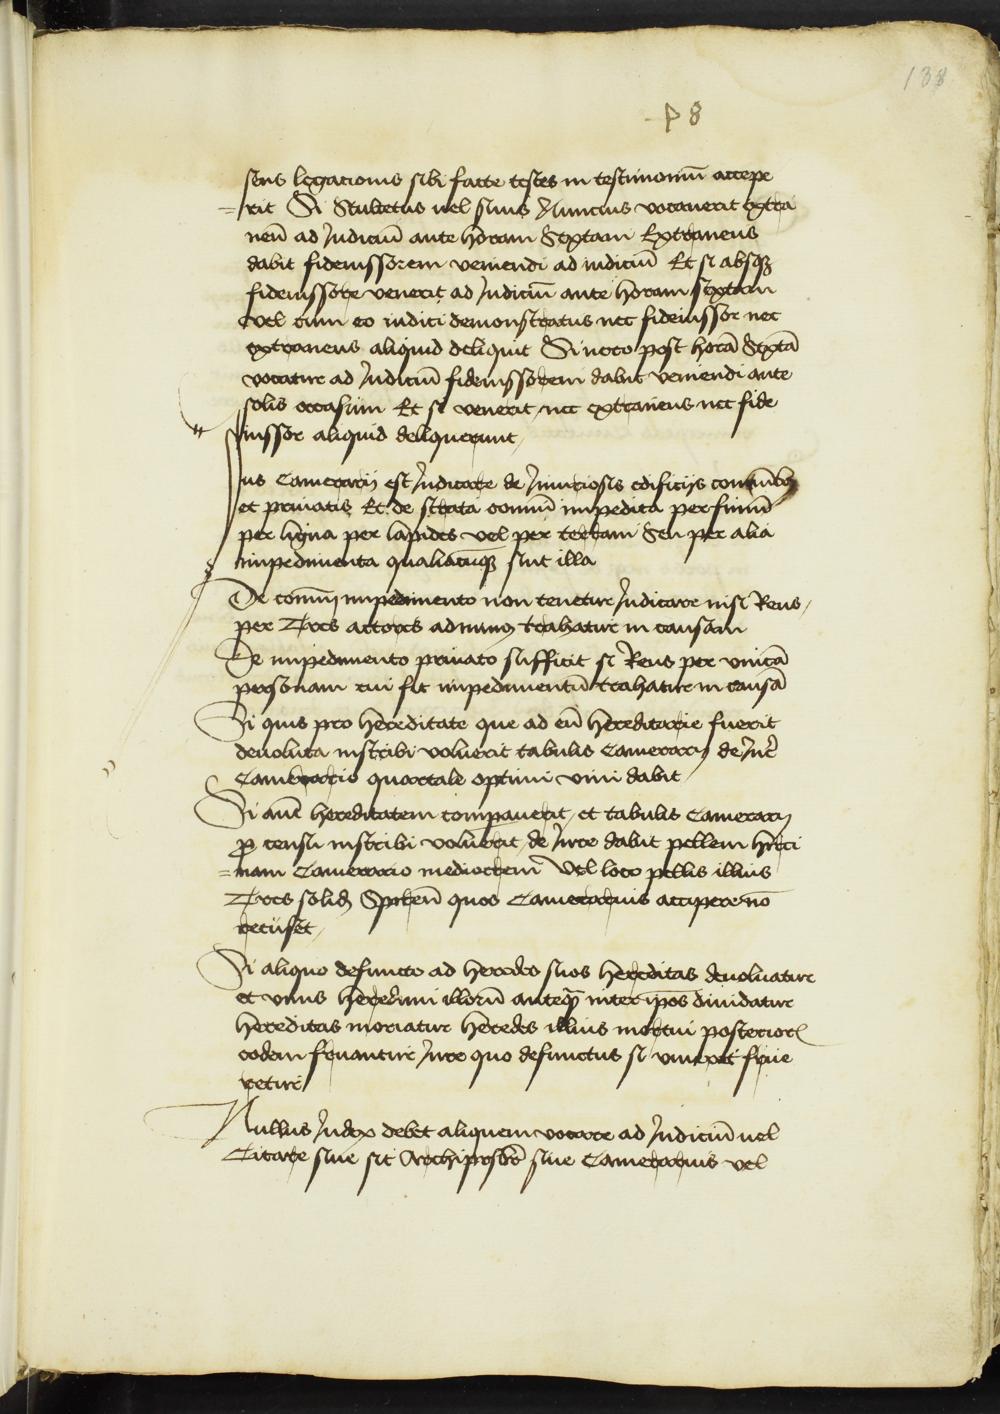 138
P 8
sens legacionis sibi facte testes in testimoniū accepe
=rit Si Scultetus uel suus Nuncius vocauerit extra
neū ad Judiciū ante horam Sextam Extraneus
dabit fideiussorem veniendi ad iudiciū Et si absqꝫ
fideiussore venerit ad Judiciū ante horam sextam
vel cum eo iudici demonstratus nec fideiussor nec
extraneus aliquid deliquit Si uero post horā Sextā
vocatur ad Judiciū fideiussorem dabit veniendi ante
solis occasum Et si venerit nec extraneus nec fide
iussor aliquid deliquerunt
Jus Camerarij est Judicare de Viniciosis edificijs
et priuatis Et de strata com̄uni impedita per fimū
per ligna per lapides vel per terram Seu per alia
impedimenta qualiacūqꝫ sint illa
De com̄uni impedimento non tenetur Judicare nisi Reus
per Tres actores ad minꝰ trahatur in causam
De impedimento priuato sufficit si Reus per vnicā
personam cui fit impedimentū trahatur in causā
Si quis pro hereditate que ad eū hereditarie fuerit
deuoluta inscribi voluerit tabulis Camerarij de Jure
Camerario quartale optimi vini dabit
Si autē hereditatem comparauerit et tabulis Camerarij
ꝓ censu inscribi voluerit de Jure dabit pellem hirci
=nam Camerario mediocrem Vel loco pellis illius
Tres solidꝭ Spirēn̄ quos Camerarius accipere nō
recuset
Si aliquo defuncto ad heredes suos hereditas deuoluatur
et vnus heredum illorū anteq̄ inter ip̄os diuidatur
hereditas moriatur heredes illius mortui posteriorꝭ
eodem fruantur Jure quo defunctus si viueret frue
retur
Nullus Judex debet aliquem vocare ad Judiciū uel
Citare siue sit Archipresbr̄ siue Camerarius vel